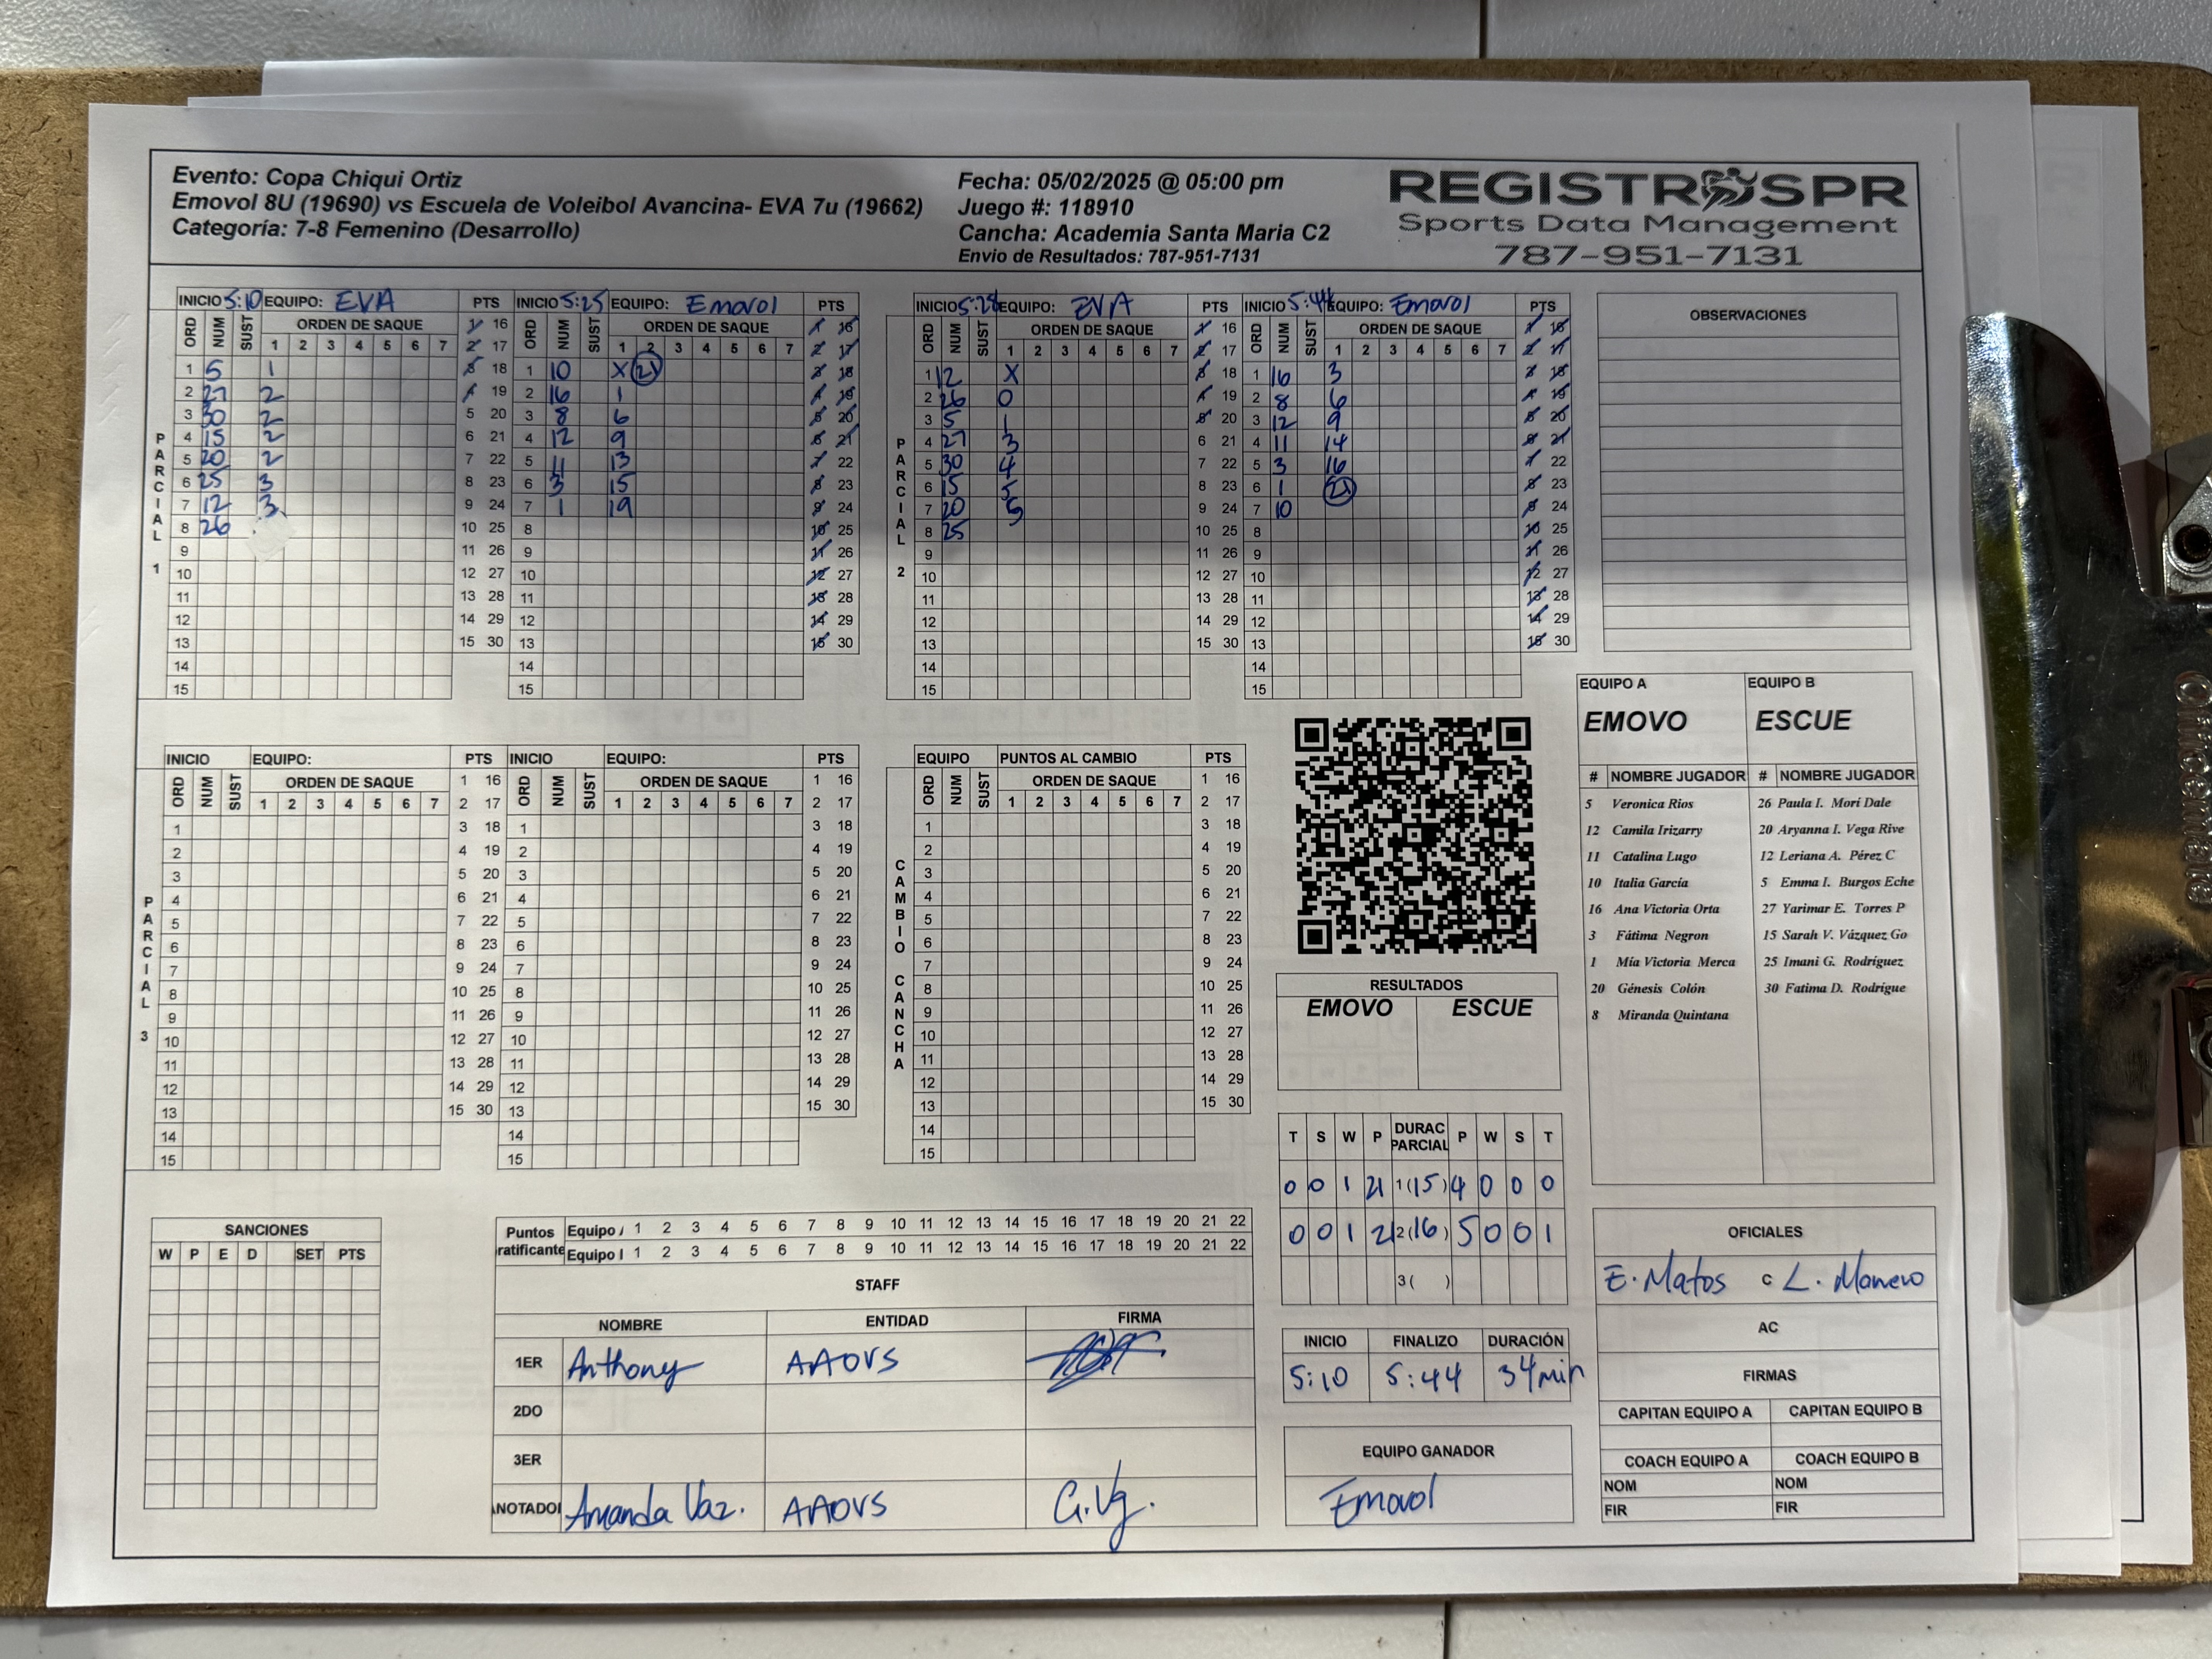 Evento: Copa Chiqui Ortiz
Emovol 8U (19690) vs Escuela de Voleibol Avancina- EVA 7u (19662)
Categoría: 7-8 Femenino (Desarrollo)
Fecha: 05/02/2025 @ 05:00 pm
Juego #: 118910
Cancha: Academia Santa Maria C2
Envio de Resultados: 787-951-7131
REGISTROSPR
Sports Data Management
787-951-7131
PARCIAL 1
INICIO 5:10 EQUIPO: EVA PTS
ORD NUM SUST ORDEN DE SAQUE
1 2 3 4 5 6 7
1 5 1
2 27 2
3 30 2
4 15 2
5 20 2
6 25 3
7 12 3
8 26
9
10
11
12
13
14
15
1 16
2 17
3 18
4 19
5 20
6 21
7 22
8 23
9 24
10 25
11 26
12 27
13 28
14 29
15 30
INICIO 5:25 EQUIPO: Emovol PTS
ORD NUM SUST ORDEN DE SAQUE
1 2 3 4 5 6 7
1 10 X 21
2 16 1
3 8 6
4 12 9
5 11 13
6 3 15
7 1 19
8
9
10
11
12
13
14
15
1 16
2 17
3 18
4 19
5 20
6 21
7 22
8 23
9 24
10 25
11 26
12 27
13 28
14 29
15 30
PARCIAL 2
INICIO 5:28 EQUIPO: EVA PTS
ORD NUM SUST ORDEN DE SAQUE
1 2 3 4 5 6 7
1 12 X
2 26 0
3 5 1
4 27 3
5 30 4
6 15 5
7 20 5
8 25
9
10
11
12
13
14
15
1 16
2 17
3 18
4 19
5 20
6 21
7 22
8 23
9 24
10 25
11 26
12 27
13 28
14 29
15 30
INICIO 5:44 EQUIPO: Emovol PTS
ORD NUM SUST ORDEN DE SAQUE
1 2 3 4 5 6 7
1 16 3
2 8 6
3 12 9
4 11 14
5 3 16
6 1 21
7 10
8
9
10
11
12
13
14
15
1 16
2 17
3 18
4 19
5 20
6 21
7 22
8 23
9 24
10 25
11 26
12 27
13 28
14 29
15 30
OBSERVACIONES
EQUIPO A EQUIPO B
EMOVO ESCUE
# NOMBRE JUGADOR # NOMBRE JUGADOR
5 Veronica Rios 26 Paula I. Morí Dale
12 Camila Irizarry 20 Aryanna I. Vega Rive
11 Catalina Lugo 12 Leriana A. Pérez C
10 Italia García 5 Emma I. Burgos Eche
16 Ana Victoria Orta 27 Yarimar E. Torres P
3 Fátima Negron 15 Sarah V. Vázquez Go
1 Mía Victoria Merca 25 Imani G. Rodríguez
20 Génesis Colón 30 Fatima D. Rodrígue
8 Miranda Quintana
PARCIAL 3
INICIO EQUIPO: PTS
ORD NUM SUST ORDEN DE SAQUE
1 2 3 4 5 6 7
1
2
3
4
5
6
7
8
9
10
11
12
13
14
15
1 16
2 17
3 18
4 19
5 20
6 21
7 22
8 23
9 24
10 25
11 26
12 27
13 28
14 29
15 30
INICIO EQUIPO: PTS
ORD NUM SUST ORDEN DE SAQUE
1 2 3 4 5 6 7
1
2
3
4
5
6
7
8
9
10
11
12
13
14
15
1 16
2 17
3 18
4 19
5 20
6 21
7 22
8 23
9 24
10 25
11 26
12 27
13 28
14 29
15 30
CAMBIO CANCHA
EQUIPO PUNTOS AL CAMBIO PTS
ORD NUM SUST ORDEN DE SAQUE
1 2 3 4 5 6 7
1
2
3
4
5
6
7
8
9
10
11
12
13
14
15
1 16
2 17
3 18
4 19
5 20
6 21
7 22
8 23
9 24
10 25
11 26
12 27
13 28
14 29
15 30
RESULTADOS
EMOVO ESCUE
T S W P DURAC PARCIAL P W S T
0 0 1 21 1(15) 4 0 0 0
0 0 1 21 2(16) 5 0 0 1
3( )
INICIO FINALIZO DURACIÓN
5:10 5:44 34min
EQUIPO GANADOR
Emovol
SANCIONES
W P E D SET PTS
Puntos Equipo 1 2 3 4 5 6 7 8 9 10 11 12 13 14 15 16 17 18 19 20 21 22
ratificante Equipo 1 2 3 4 5 6 7 8 9 10 11 12 13 14 15 16 17 18 19 20 21 22
STAFF
NOMBRE ENTIDAD FIRMA
1ER Anthony AAOVS
2DO
3ER
ANOTADOR Amanda Vaz. AAOVS G.Vg.
OFICIALES
E. Matos C L.
AC
FIRMAS
CAPITAN EQUIPO A CAPITAN EQUIPO B
COACH EQUIPO A COACH EQUIPO B
NOM NOM
FIR FIR